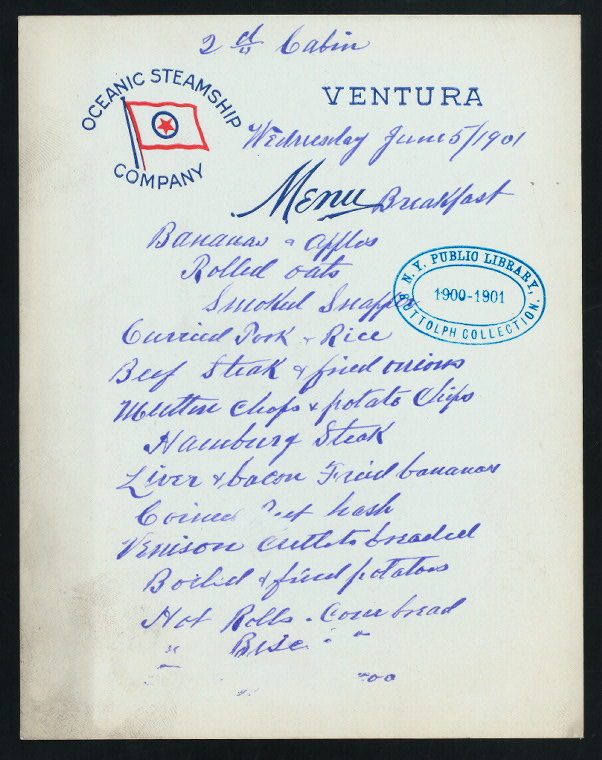 2d Cabin
OCEANIC STEAMSHIP
COMPANY
VENTURA
Wednesday June 5/1901
Menu Breakfast
Bananas & apples
Rolled oats
Smoked Snapper
N.Y. PUBLIC LIBRARY,
1900-1901
BUTTOLPH COLLECTION.
Curried Pork & Rice
Beef Steak & fried onions
Mutton Chops & potato Chips
Hamburg Steak
Liver & bacon Fried bananas
Corned hash
Venison cutlets breaded
Boiled & fried potatoes
Hot Rolls - Corn bread
" "